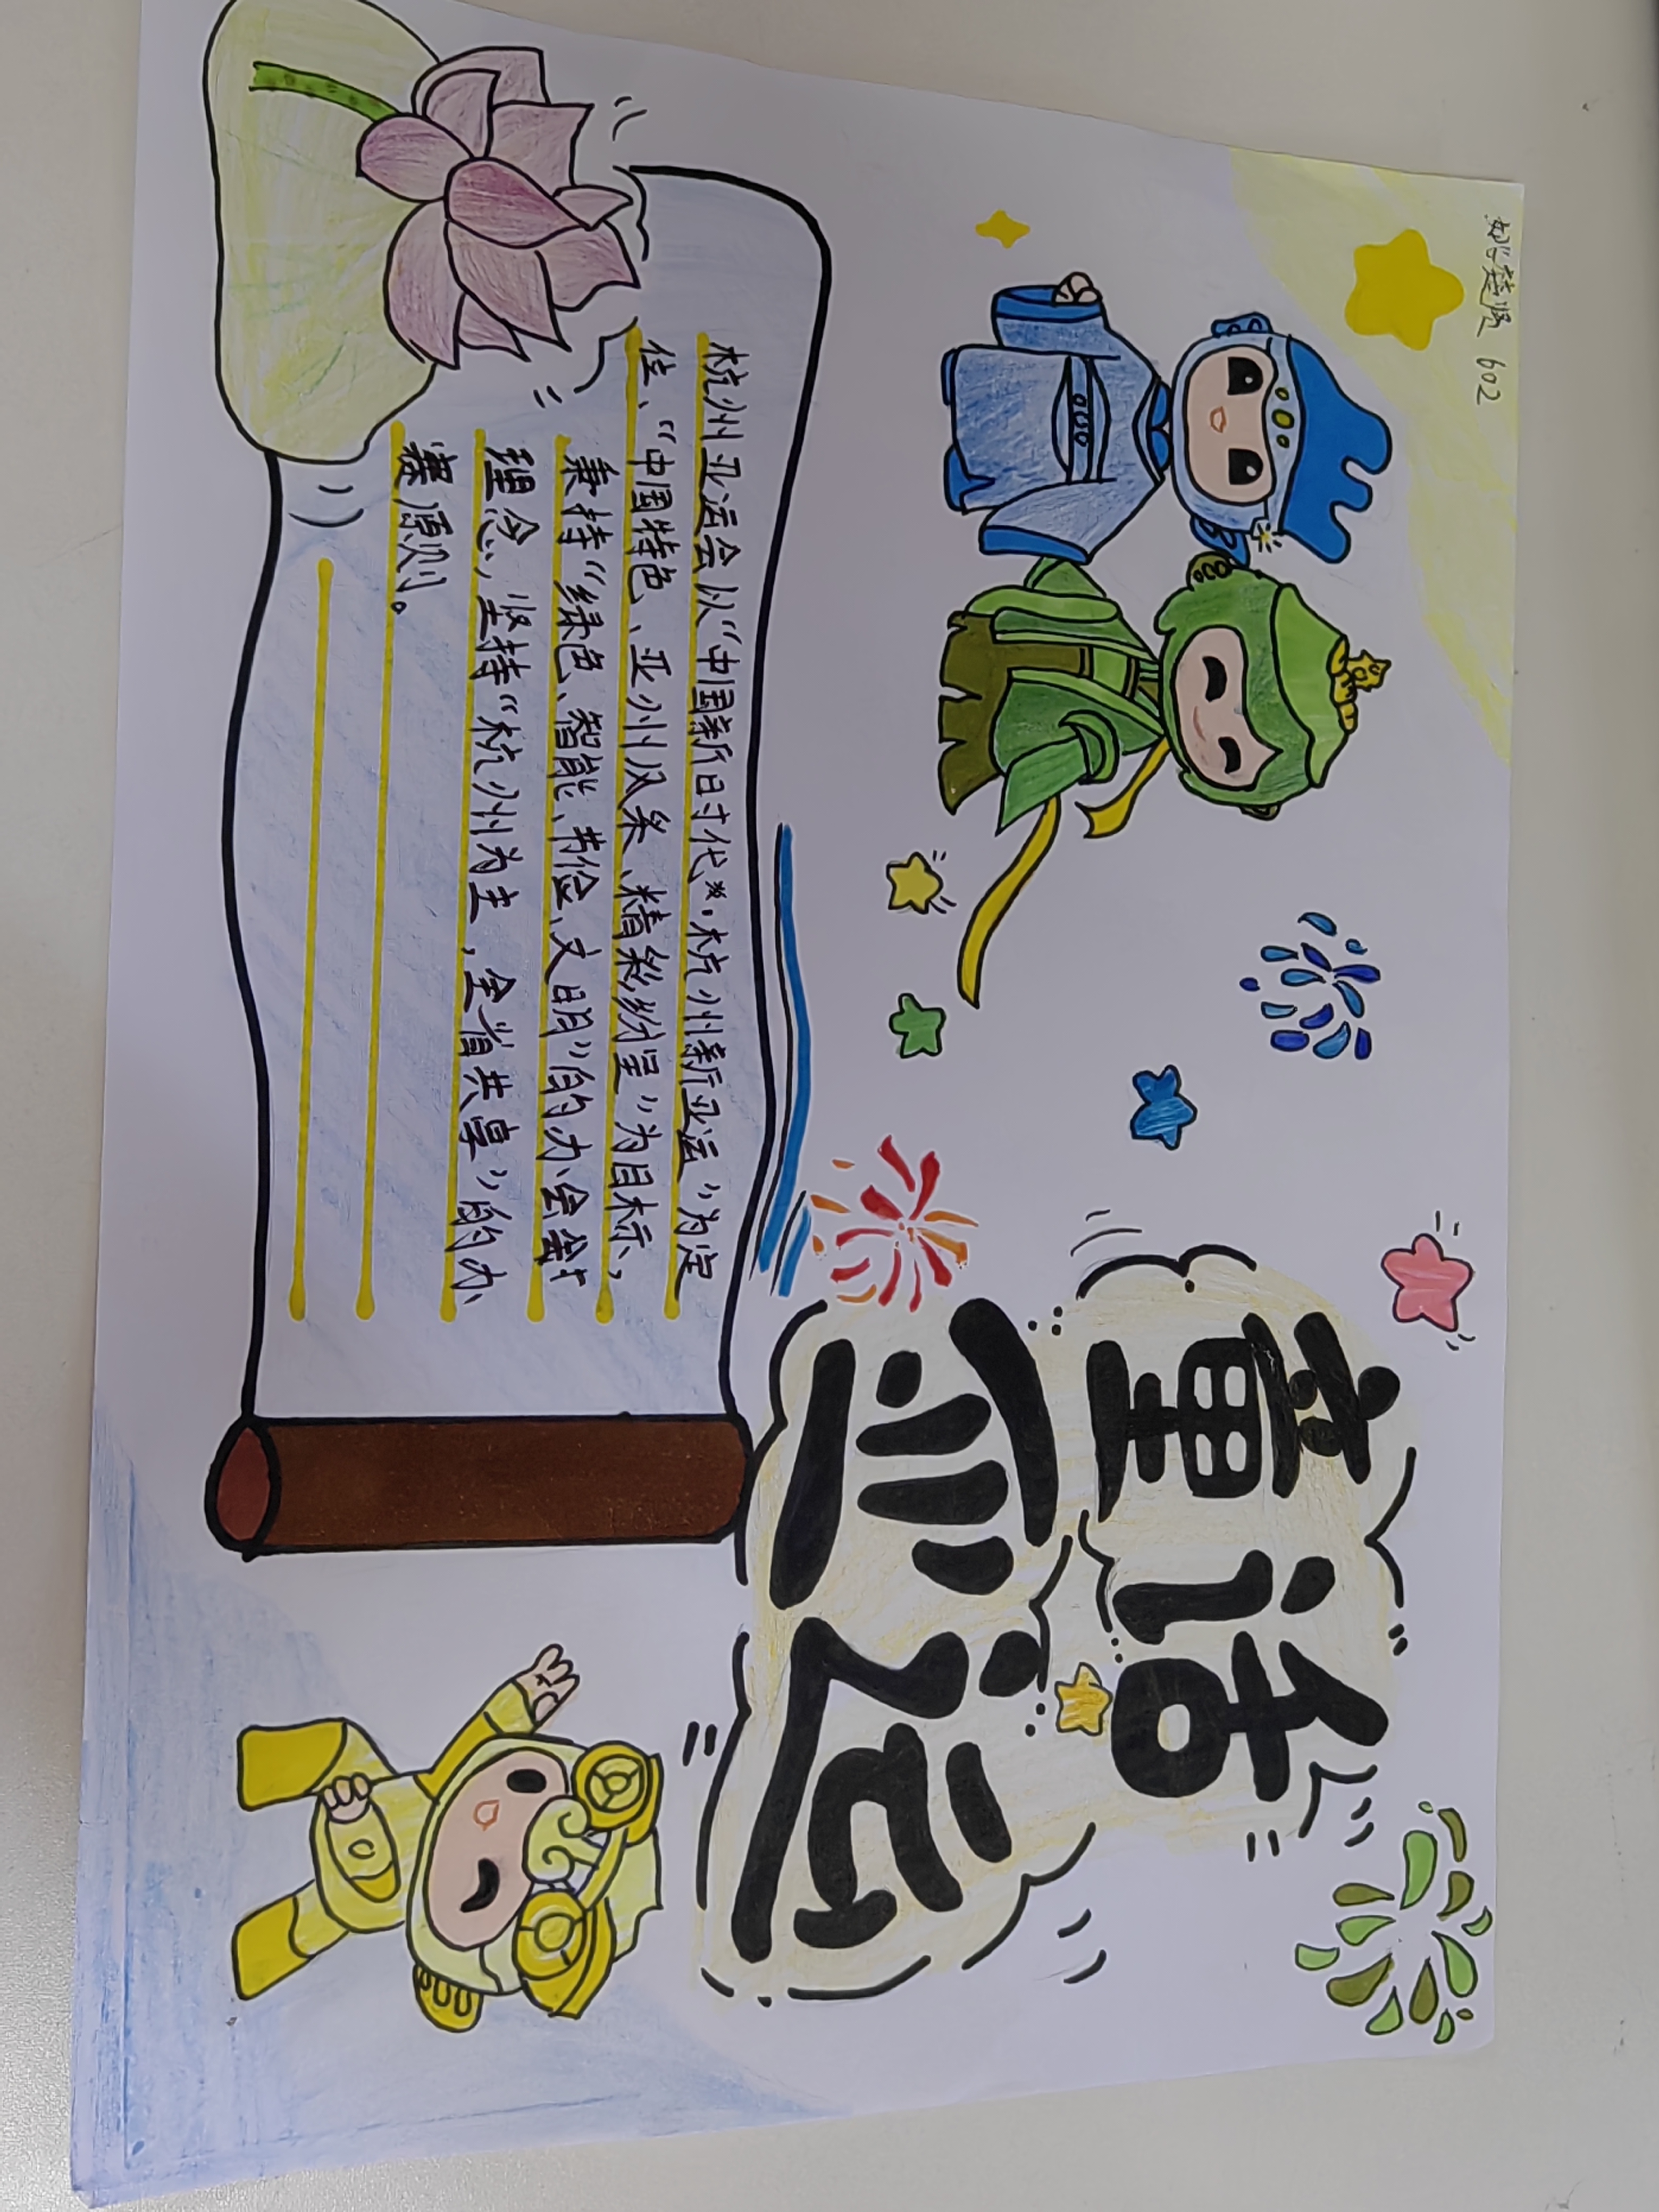 602
童话
亚运
杭州亚运会以“中国新时代”·杭州新亚运”为定
位、“中国特色、亚州风采、精彩纷呈”为目标，
秉持“绿色、智能、节俭、文明”的办会
理念，坚持“杭州为主，全省共享”的办
赛原则。